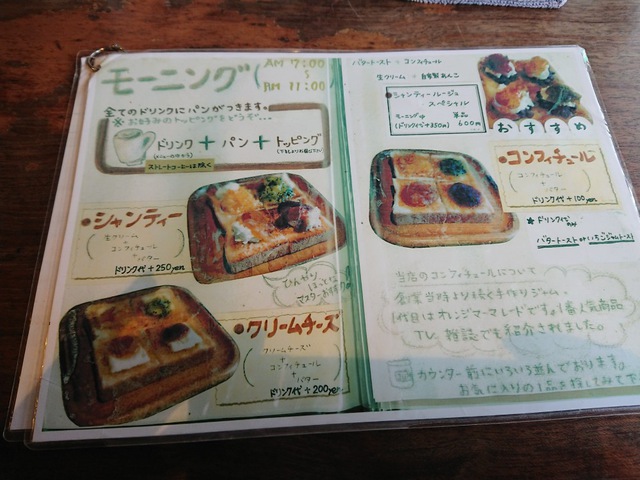 モーニング
AM 7:00
〜
AM 11:00
全てのドリンクにパンがつきます。
※お好みのトッピングをどうぞ…
ドリンク + パン + トッピング
ストレートコーヒーは除く
シャンティー
生クリーム
+
コンフィチュール
+
バター
ドリンク代 + 250yen
ひんやり
クリームチーズ
クリームチーズ
+
コンフィチュール
+
バター
ドリンク代 + 200yen
バタートースト コンフィチュール
生クリーム 自家製あんこ
シャンティールージュ
スペシャル
モーニング 単品
(ドリンク代+350円) 600円
おすすめ
コンフィチュール
コンフィチュール
+
バター
ドリンク代 + 100yen
★ ドリンク代
バタートースト or いちごジャムトースト
当店のコンフィチュールについて
創業当時より続く手作りジャム。
1代目はオレンジマーマレードです。1番人気商品
TV、雑誌でも紹介されました。
カウンター前にいろいろ並んでおります。
お気に入りの1品を探してみて下